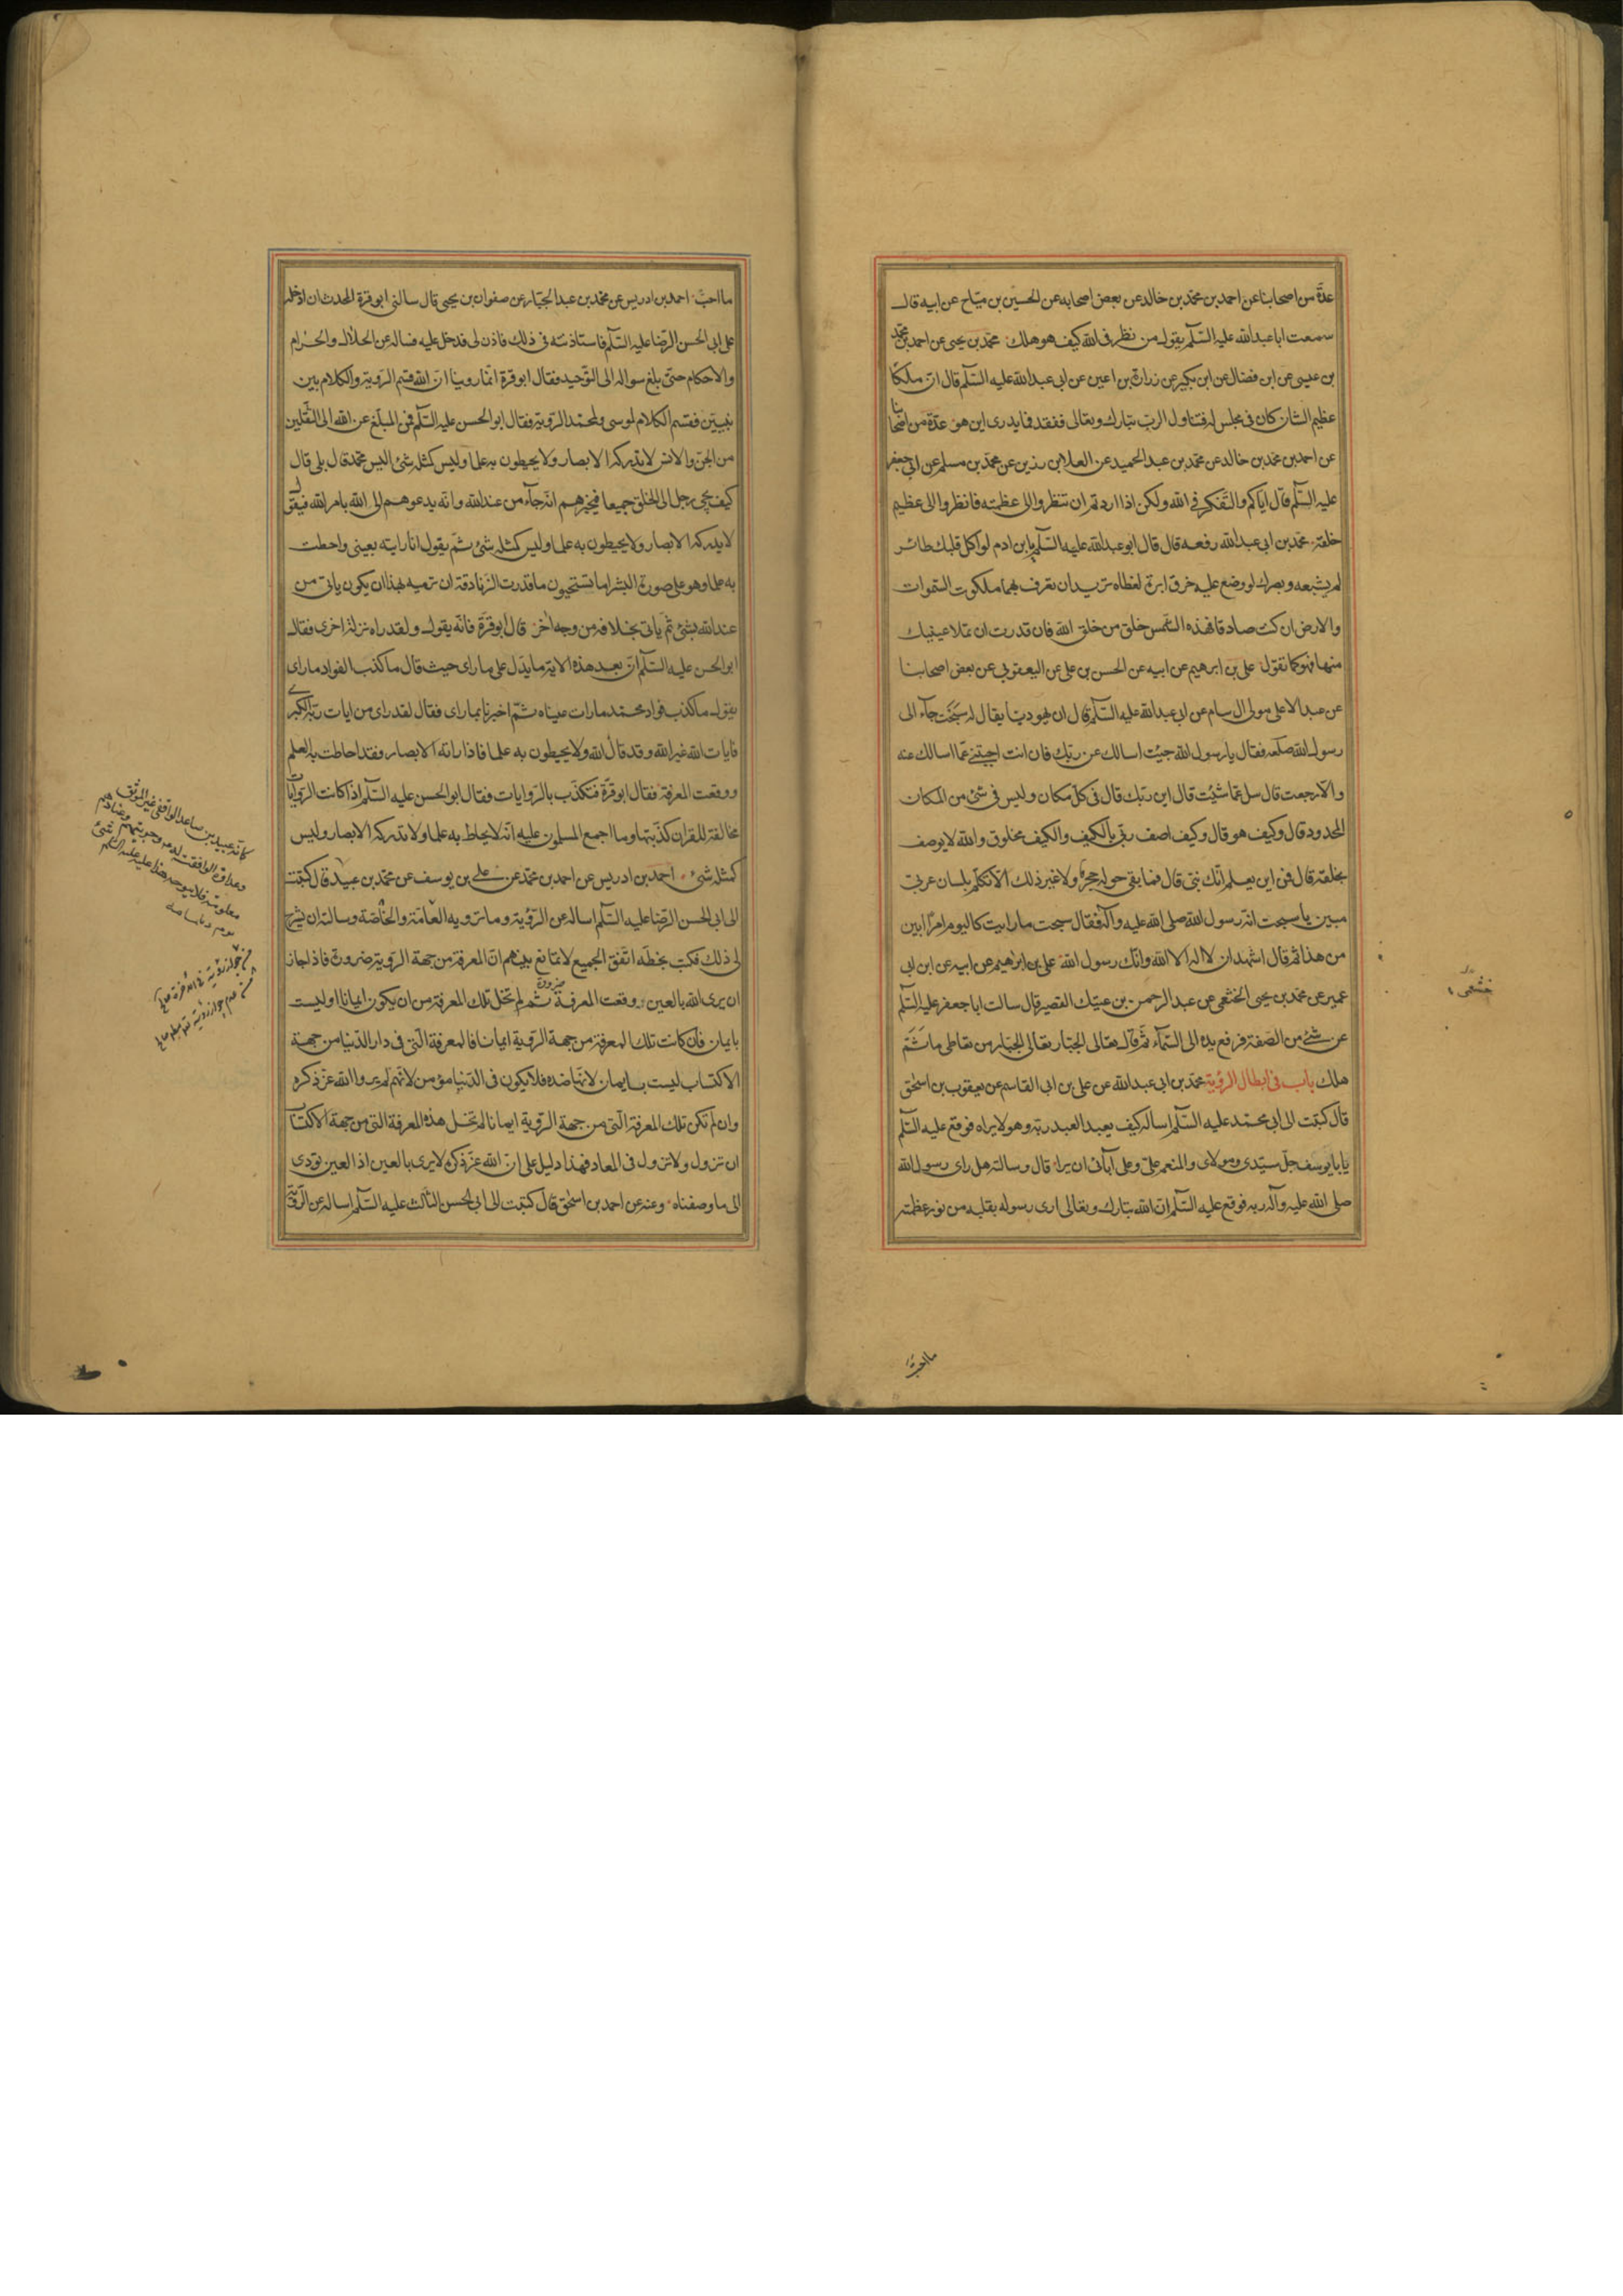 عدّة من اصحابنا عن احمد بن محمّد بن خالد عن بعض اصحابه عن الحسين بن ميّاح عن ابيه قال
سمعت ابا عبدالله عليه السّلم يقول من نظر فى الله كيف هو هلك محمّد بن يحيى عن احمد بن محمّد
بن عيسى عن ابن فضال عن ابن بكير عن زرارة بن اعين عن ابى عبدالله عليه السّلم قال انّ ملكًا
عظيم الشان كان فى مجلس له فتناول الربّ تبارك وتعالى ففقد فما يدرى اين هو عدّة من اصحابنا
عن احمد بن محمّد بن خالد عن محمّد بن عبد الحميد عن العلا بن رزين عن محمّد بن مسلم عن ابى جعفر
عليه السّلم قال اياكم والتّفكر فى الله ولكن اذا اردتم ان تنظروا الى عظمته فانظروا الى عظيم
خلقه محمّد بن ابى عبدالله رفعه قال قال ابو عبدالله عليه السّلم يا بن ادم لو اكل قلبك طائر
لم يشبعه وبصرك لو وضع عليه خرق ابرة لغطاه تريد ان تعرف بهما ملكوت السّموات
والارض ان كنت صادقا فهذه الشّمس خلق من خلق الله فان قدرت ان تملا عينيك
منها فهو كما تقول على بن ابرهيم عن ابيه عن الحسن بن على عن اليعقوبى عن بعض اصحابنا
عن عبد الاعلى مولى ال سام عن ابى عبدالله عليه السّلم قال ان يهوديّا يقال له سبحت جآء الى
رسول الله صلعم فقال يا رسول الله جيت اسالك عن ربّك فان انت اجبتنى عمّا اسالك عنه
والّا رجعت قال سل عمّا شئت قال اين ربّك قال فى كلّ مكان وليس فى شئ من المكان
المحدود قال وكيف هو قال وكيف اصف ربّى بالكيف والكيف مخلوق والله لا يوصف
بخلقه قال فمن اين يعلم انّك نبىّ قال فما بقى حوله حجر ولا غير ذلك الّا تكلّم بلسان عربى
مبين يا سبحت انّه رسول الله صلى الله عليه وآله فقال سبحت ما رايت كاليوم امرًا ابين
من هذا ثم قال اشهد ان لا اله الا الله وانّك رسول الله على بن ابرهيم عن ابيه عن ابن ابى
عمير عن محمّد بن يحيى الخثعمى عن عبد الرحمن بن عتيك القصير قال سالت ابا جعفر عليه السّلم
عن شئ من الصّفة فرفع يده الى السّمآء ثمّ قال تعالى الجبّار تعالى الجبّار من تعاطى ما ثَمَّ
هلك باب فى ابطال الرؤية محمّد بن ابى عبدالله عن على بن ابى القاسم عن يعقوب بن اسحق
قال كتبت الى ابى محمّد عليه السّلم اساله كيف يعبد العبد ربّه وهو لا يراه فوقع عليه السّلم
يا با يوسف جلّ سيّدى ومولاى والمنعم علىّ وعلى آبائى ان يرا قال وسالته هل راى رسول الله
صلى الله عليه وآله ربه فوقع عليه السّلم انّ الله تبارك وتعالى ارى رسوله بقلبه من نور عظمته
خثعمى
ما احبّ
ما احبّ احمد بن ادريس عن محمّد بن عبد الجبّار عن صفوان بن يحيى قال سالنى ابو قرة المحدث ان ادخله
على ابى الحسن الرّضا عليه السّلم فاستاذنته فى ذلك فاذن لى فدخل عليه فساله عن الحلال والحرام
والاحكام حتّى بلغ سواله الى التّوحيد فقال ابو قرة انّا روينا انّ الله قسم الرّوية والكلام بين
نبيين فقسم الكلام لموسى ولمحمّد الرّوية فقال ابو الحسن عليه السّلم فمن المبلّغ عن الله الى الثّقلين
من الجنّ والانس لا تدركه الابصار ولا يحيطون به علما وليس كمثله شئ اليس محمّد قال بلى قال
كيف يجئ رجل الى الخلق جميعا فيخبرهم انّه جآء من عند الله وانّه يدعوهم الى الله بامر الله فيقول
لا تدركه الابصار ولا يحيطون به علما وليس كمثله شئ ثمّ يقول انا رايته بعينى واحطت
به علما وهو على صورة البشر اما تستحيون ما قدرت الزنادقة ان ترميه بهذا ان يكون ياتى من
عند الله بشئ ثمّ ياتى بخلافه من وجه اخر قال ابو قرّة فانّه يقول ولقد راه نزلة اخرى فقال
ابو الحسن عليه السّلم انّ بعد هذه الاية ما يدّل على ما راى حيث قال ما كذب الفواد ما راى
يقول ما كذب فواد محمّد ما رات عيناه ثمّ اخبرنا بما راى فقال لقد راى من ايات ربّه الكبرى
فايات الله غير الله وقد قال الله ولا يحيطون به علما فاذا راته الابصار وفقد احاطت به العلم
ووقعت المعرفة فقال ابو قرّة فتكذّب بالرّوايات فقال ابو الحسن عليه السّلم اذا كانت الرّوايات
مخالفة للقران كذّبتها وما اجمع المسلمون عليه انّه لا يحاط به علما ولا تدركه الابصار وليس
كمثله شئ احمد بن ادريس عن احمد بن محمّد عن على بن يوسف عن محمّد بن عبيد قال كتبت
الى ابى الحسن الرّضا عليه السّلم اساله عن الرّؤية وما ترويه العّامّة والخاصّة وسالته ان يشرح
لى ذلك فكتب بخطّه اتّفق الجميع لا تمانع بينهم انّ المعرفة من جهة الرّوية ضرورة فاذا جاز
ان يرى الله بالعين وقعت المعرفة ضرورة ثمّ لم تخل تلك المعرفة من ان يكون ايمانا او ليست
بايمان فان كانت تلك المعرفة من جهة الرّوية ايمانا فالمعرفة الّتى فى دار الدّنيا من جهة
الاكتساب ليست بايمان لانّها ضدّه فلا يكون فى الدّنيا مؤمن لانّهم لم يروا الله عزّ ذكره
وان لم تكن تلك المعرفة الّتى من جهة الرّوية ايمانا لم تخل هذه المعرفة التى من جهة الاكتساب
ان تزول ولا تزول فى المعاد فهذا دليل على انّ الله عزّ ذكره لا يرى بالعين اذ العين تودى
الى ما وصفناه وعنه عن احمد بن اسحق قال كتبت الى ابى الحسن الثّالث عليه السّلم اساله عن الرّؤية